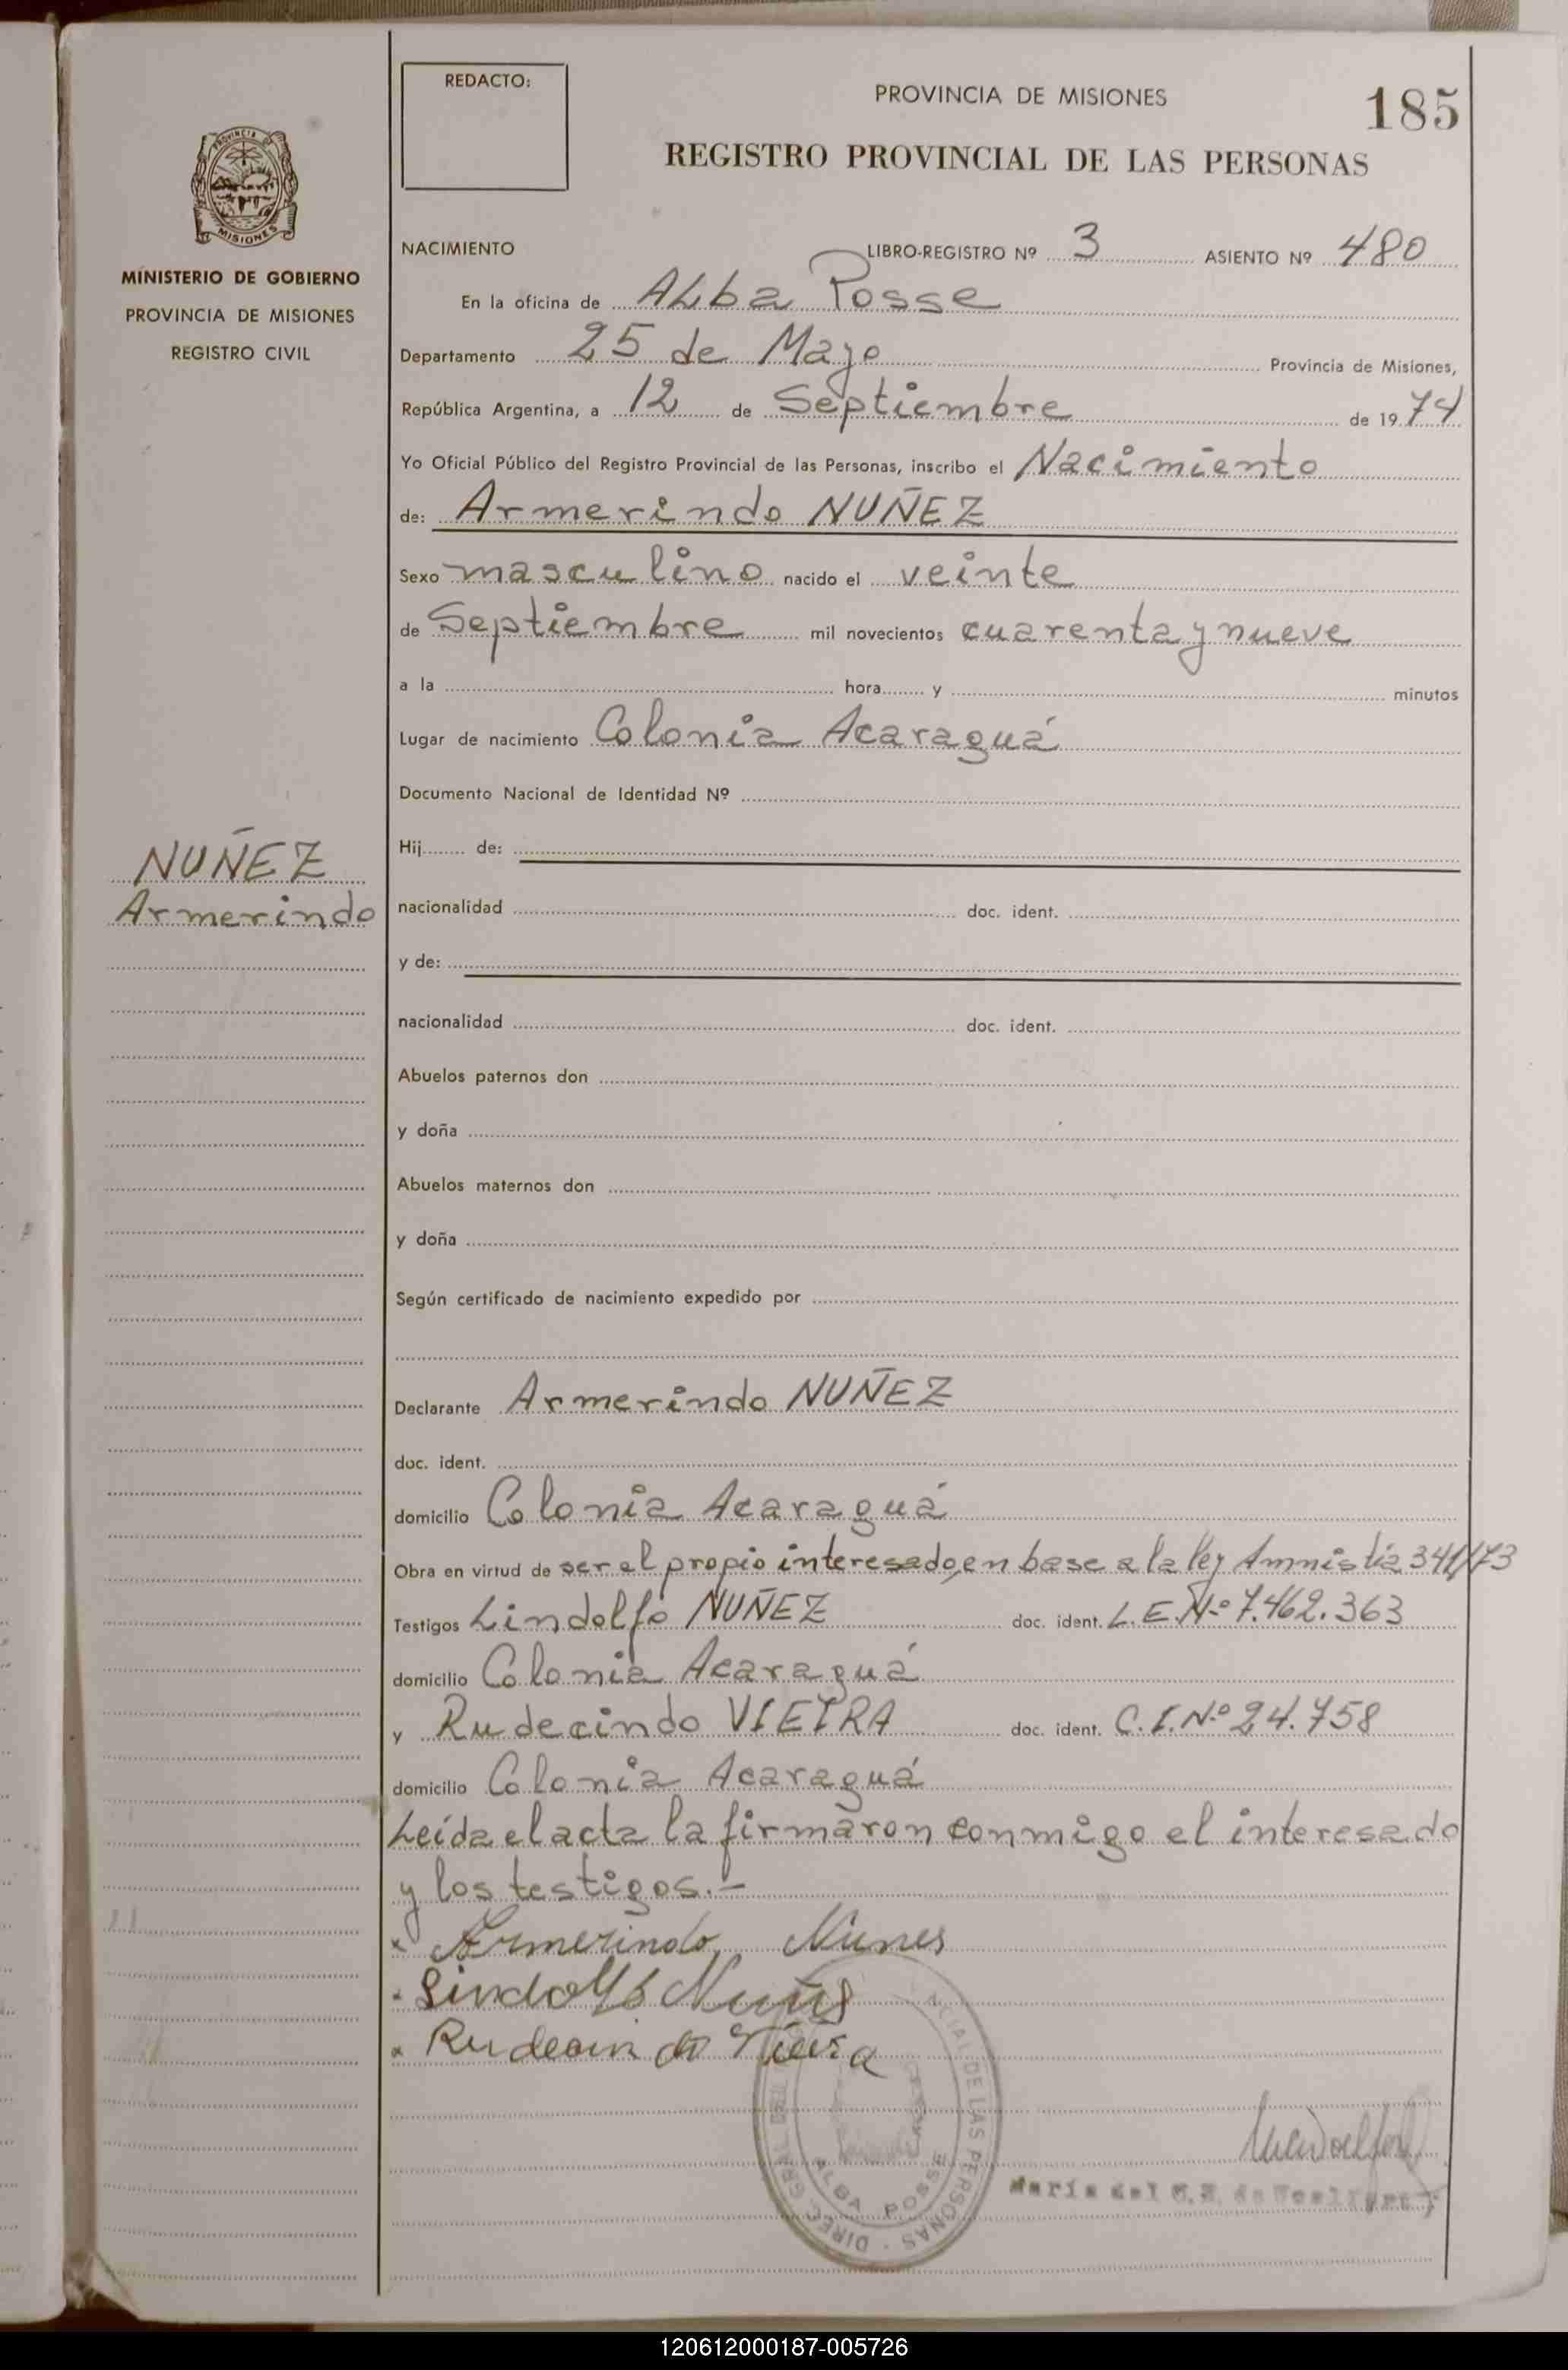 REDACTO:
PROVINCIA DE MISIONES
185
REGISTRO PROVINCIAL DE LAS PERSONAS
PROVINCIA
MISIONES
MINISTERIO DE GOBIERNO
PROVINCIA DE MISIONES
REGISTRO CIVIL
NACIMIENTO LIBRO-REGISTRO Nº 3 ASIENTO Nº 480
En la oficina de ALba Posse
Departamento 25 de Mayo Provincia de Misiones,
República Argentina, a 12 de Septiembre de 1974
Yo Oficial Público del Registro Provincial de las Personas, inscribo el Nacimiento
de: Armerindo NUÑEZ
Sexo masculino nacido el veinte
de Septiembre mil novecientos cuarenta y nueve
a la hora y minutos
Lugar de nacimiento Colonia Acaraguá
Documento Nacional de Identidad Nº
Hij de:
nacionalidad doc. ident.
y de:
nacionalidad doc. ident.
Abuelos paternos don
y doña
Abuelos maternos don
y doña
Según certificado de nacimiento expedido por
NUÑEZ
Armerindo
Declarante Armerindo NUÑEZ
doc. ident.
domicilio Colonia Acaraguá
Obra en virtud de ser el propio interesado, en base a la ley Amnistia 341/73
Testigos Lindolfo NUÑEZ doc. ident. L.E.Nº 7.462.363
domicilio Colonia Acaraguá
y Rudecindo VIEIRA doc. ident. C.I.Nº 24.758
domicilio Colonia Acaraguá
Leída el acta la firmaron conmigo el interesado
y los testigos.-
x Armerindo Nunes
Lindolfo
x Rudecindo Vieira
DE LAS PERSONAS · DIREC GRAL
ALBA POSSE
María del
120612000187-005726